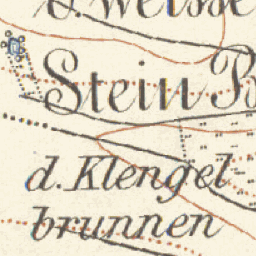 d. Weisse
Stein B
d. Klengel
brunnen